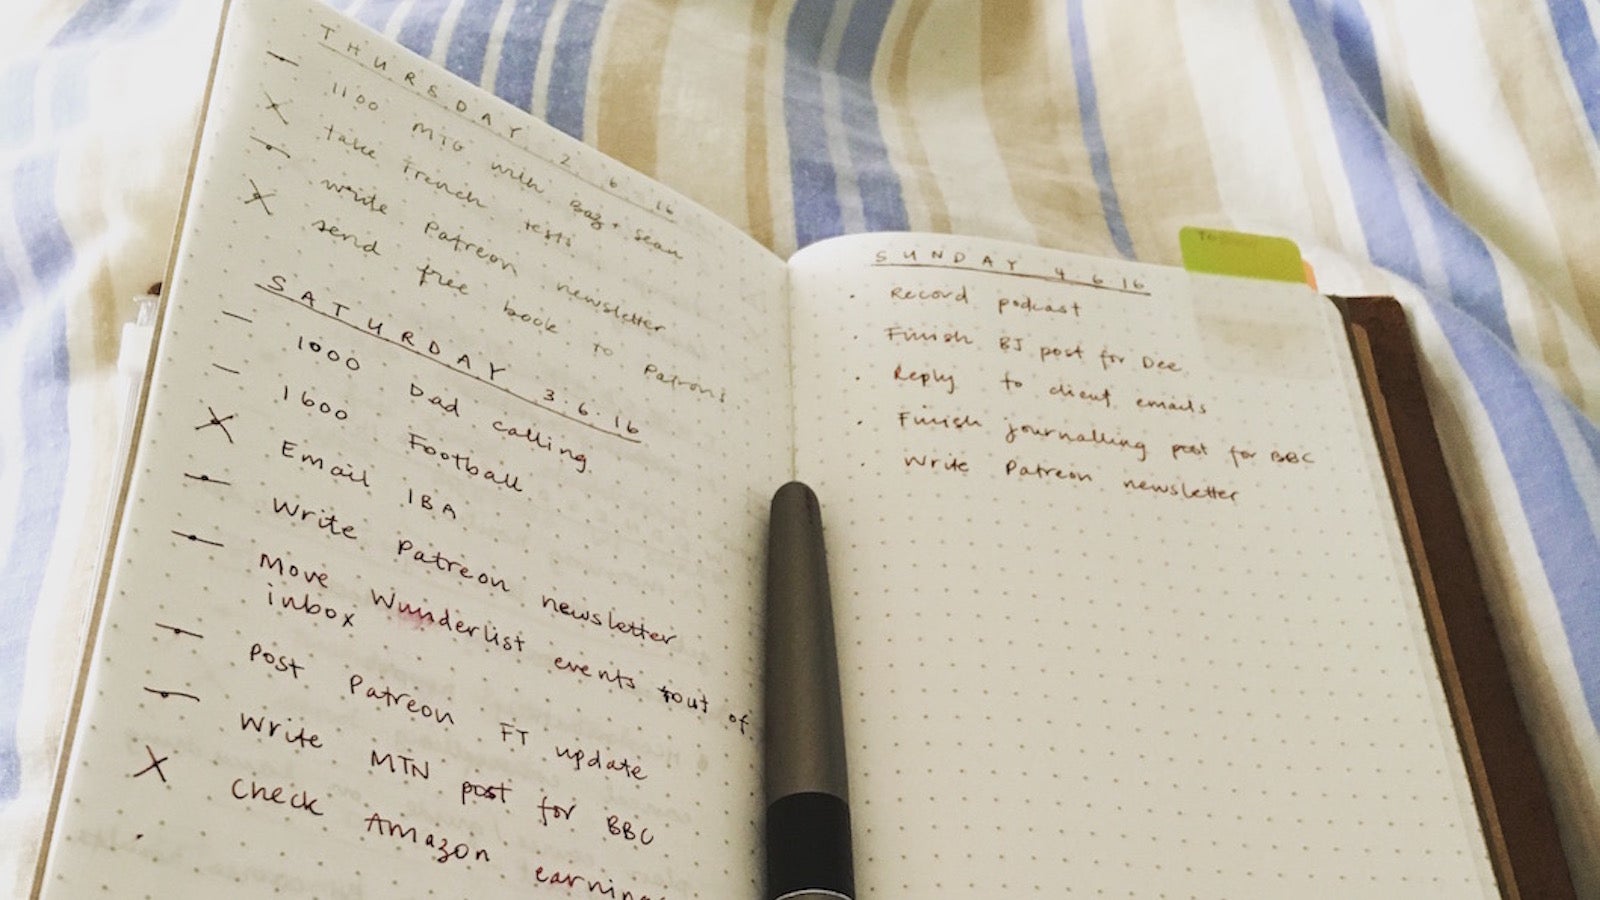 THURSDAY 2.6.16
– 1100 MTG with Baz + Sean
× take French tests
– write Patreon newsletter
× send free book to Patrons
SATURDAY 3.6.16
– 1000 Dad calling
– 1600 Football
× Email IBA
– Write Patreon newsletter
– Move Wunderlist events out of
inbox
– Post Patreon FT update
– Write MTN post for BBC
× Check Amazon
·
SUNDAY 4.6.16
· Record podcast
· Finish BJ post for Dee
· Reply to client emails
· Finish journalling post for BBC
· Write Patreon newsletter